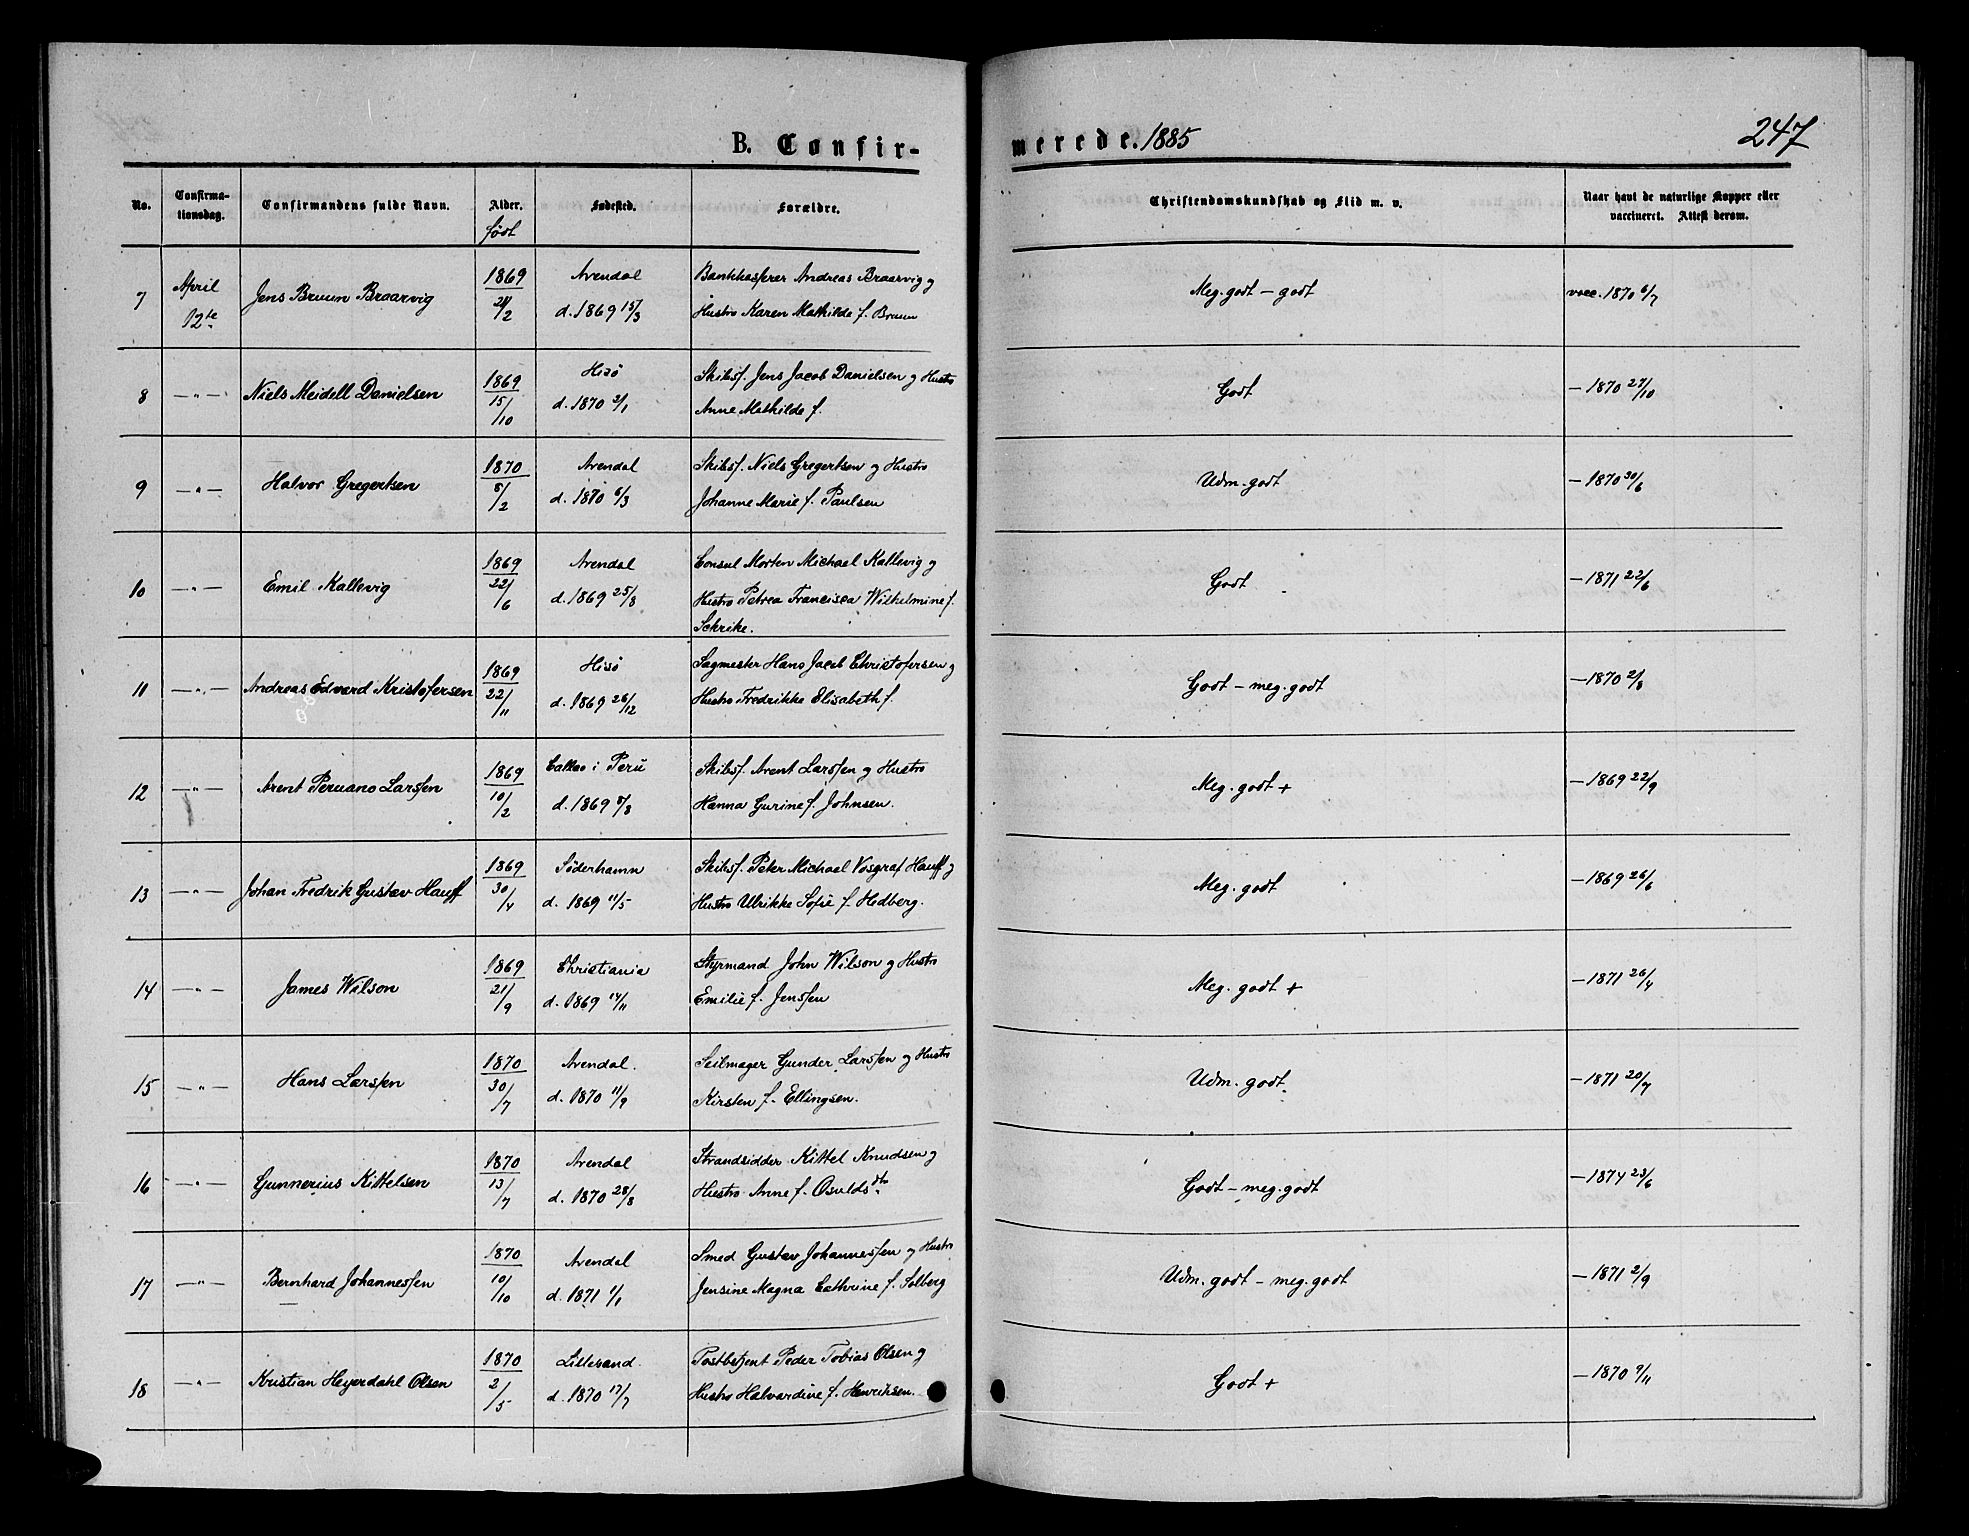 B. Confirmerede. 1885
247
No. Confirmationsdag. Confirmandens fulde Navn. Alder. født Fødested. Forældre. Christendomskundskab og Flid m. v. Naar havt de naturlige Kopper eller vaccineret. Attest derom.
7 April 12te Jens Bruun Braarvig 1869 21/2 Arendal d. 1869 15/3 Bankkasserer Andreas Braarvig og
Hustro Karen Mathilde f. Bruun Meg. godt - godt vacc. 1870 6/7
8 -"- Niels Meidell Danielsen 1869 15/10 Hisö d. 1870 2/1 Skibsf. Jens Jacob Danielsen og Hustro
Anne Mathilde f. Godt - 1870 27/10
9 -"- Halvor Gregertsen 1870 5/2 Arendal d. 1870 6/3 Skibsf. Niels Gregertsen og Hustro
Johanne Marie f. Paulsen Udm. godt - 1870 30/6
10 -"- Emil Kallevig 1869 22/6 Arendal d. 1869 25/8 Consul Morten Michael Kallevig og
Hustro Petrea Francisca Wilhelmine f.
Schrike. Godt - 1871 22/6
11 -"- Andreas Edvard Kristofersen 1869 22/11 Hisö d. 1869 26/12 Sagmester Hans Jacob Christofersen og
Hustro Fredrikke Elisabeth f. Godt - meg. godt - 1870 2/8
12 -"- Arent Peruano Larssen 1869 10/2 Callao i Peru d. 1869 8/8 Skibsf. Arent Larssen og Hustro
Hanna Gurine f. Johnsen. Meg. godt + - 1869 22/9
13 -"- Johan Fredrik Gustav Hauff 1869 30/4 Söderhamn d. 1869 11/5 Skibsf. Peter Michael Vosgraf Hauff og
Hustro Ulrikke Sofie f. Hedberg. Meg. godt - 1869 26/6
14 -"- James Wilson 1869 21/9 Christiania d. 1869 14/11 Styrmand John Wilson og Hustro
Emilie f. Jenssen Meg. godt + - 1871 26/4
15 -"- Hans Larssen 1870 30/7 Arendal. d. 1870 11/9 Seilmager Gunder Larssen og Hustro
Kirsten f. Ellingsen. Udm. godt. - 1871 20/7
16 -"- Gunnerius Kittelsen 1870 13/7 Arendal d. 1870 28/8 Strandsidder Kittel Knudsen og
Hustro Anne f. Osuldsdtr Godt - meg. godt - 1874 23/6
17 -"- Bernhard Johannessen 1870 10/10 Arendal d. 1871 1/1 Smed Gustav Johannessen og Hustro
Jensine Magna Cathrine f. Solberg Udm. godt - meg. godt - 1871 2/9
18 -"- Kristian Heyerdahl Olsen 1870 2/5 Lillesand. d. 1870 17/7 Postbetjent Peder Tobias Olsen og
Hustro Halvardine f. Henriksen. Godt + - 1870 9/11